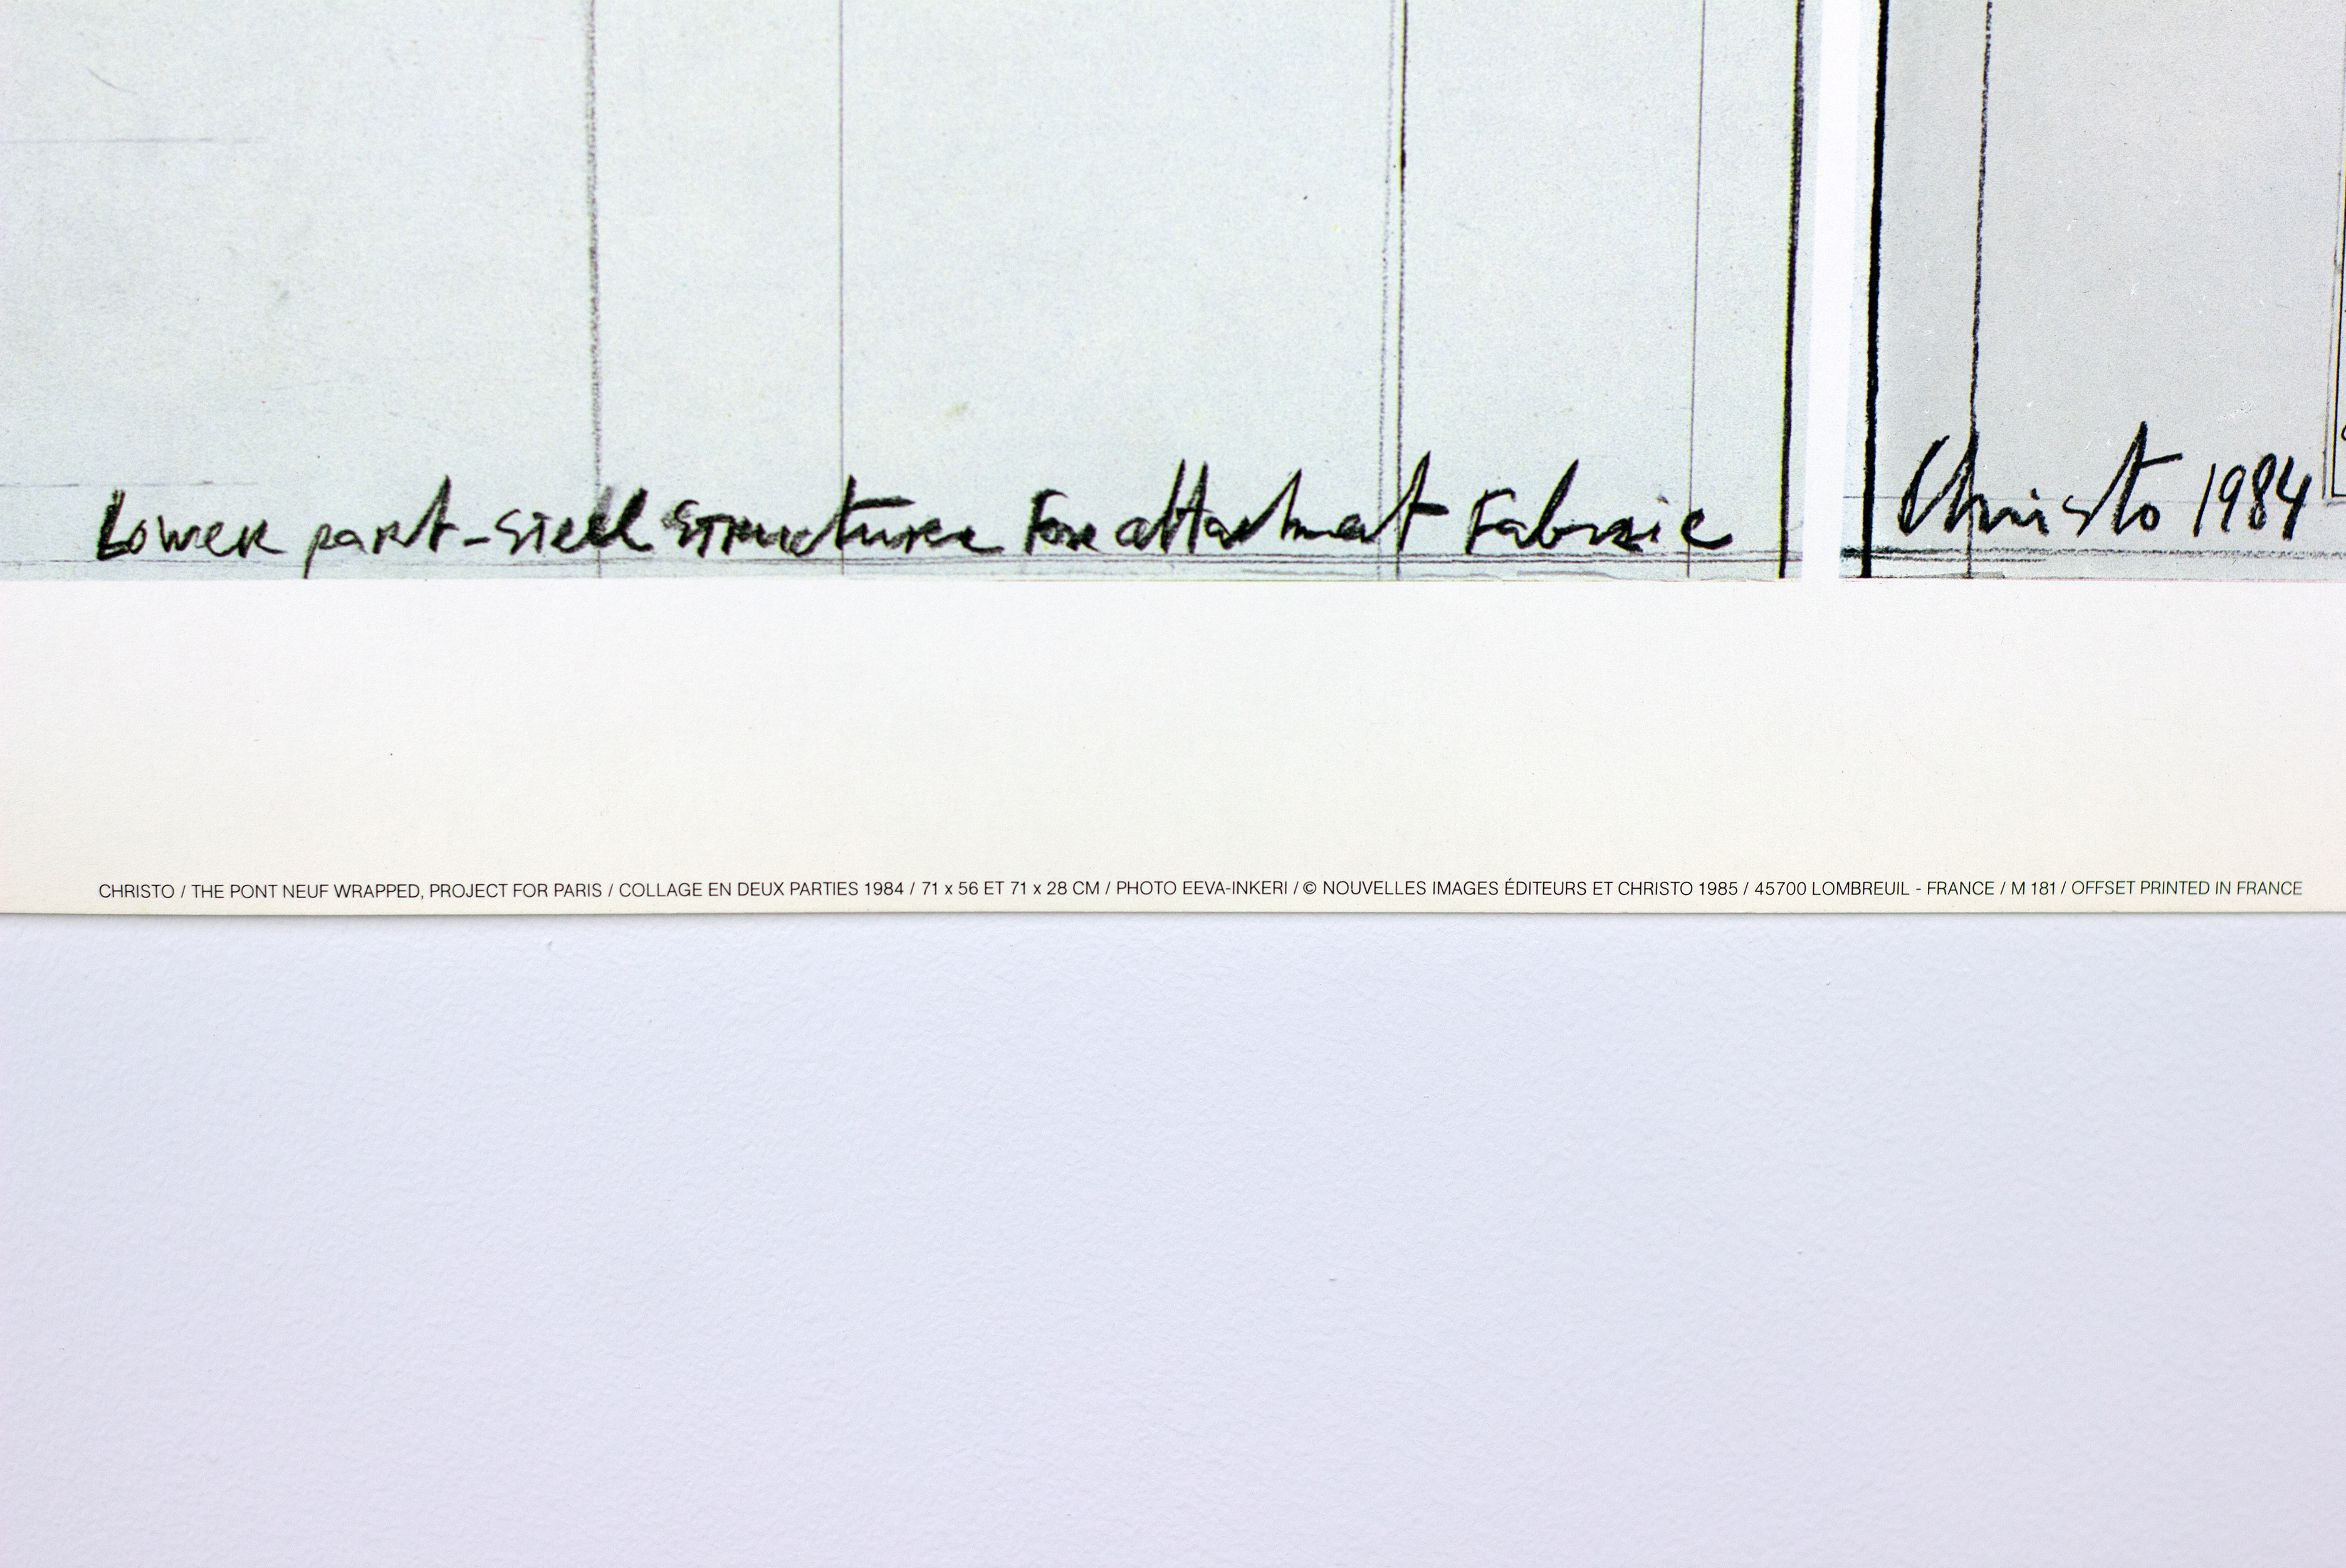 Lower part - Stell Structure For attachmat Fabric
Christo 1984
CHRISTO / THE PONT NEUF WRAPPED, PROJECT FOR PARIS / COLLAGE EN DEUX PARTIES 1984 / 71 x 56 ET 71 x 28 CM / PHOTO EEVA-INKERI / © NOUVELLES IMAGES ÉDITEURS ET CHRISTO 1985 / 45700 LOMBREUIL - FRANCE / M 181 / OFFSET PRINTED IN FRANCE